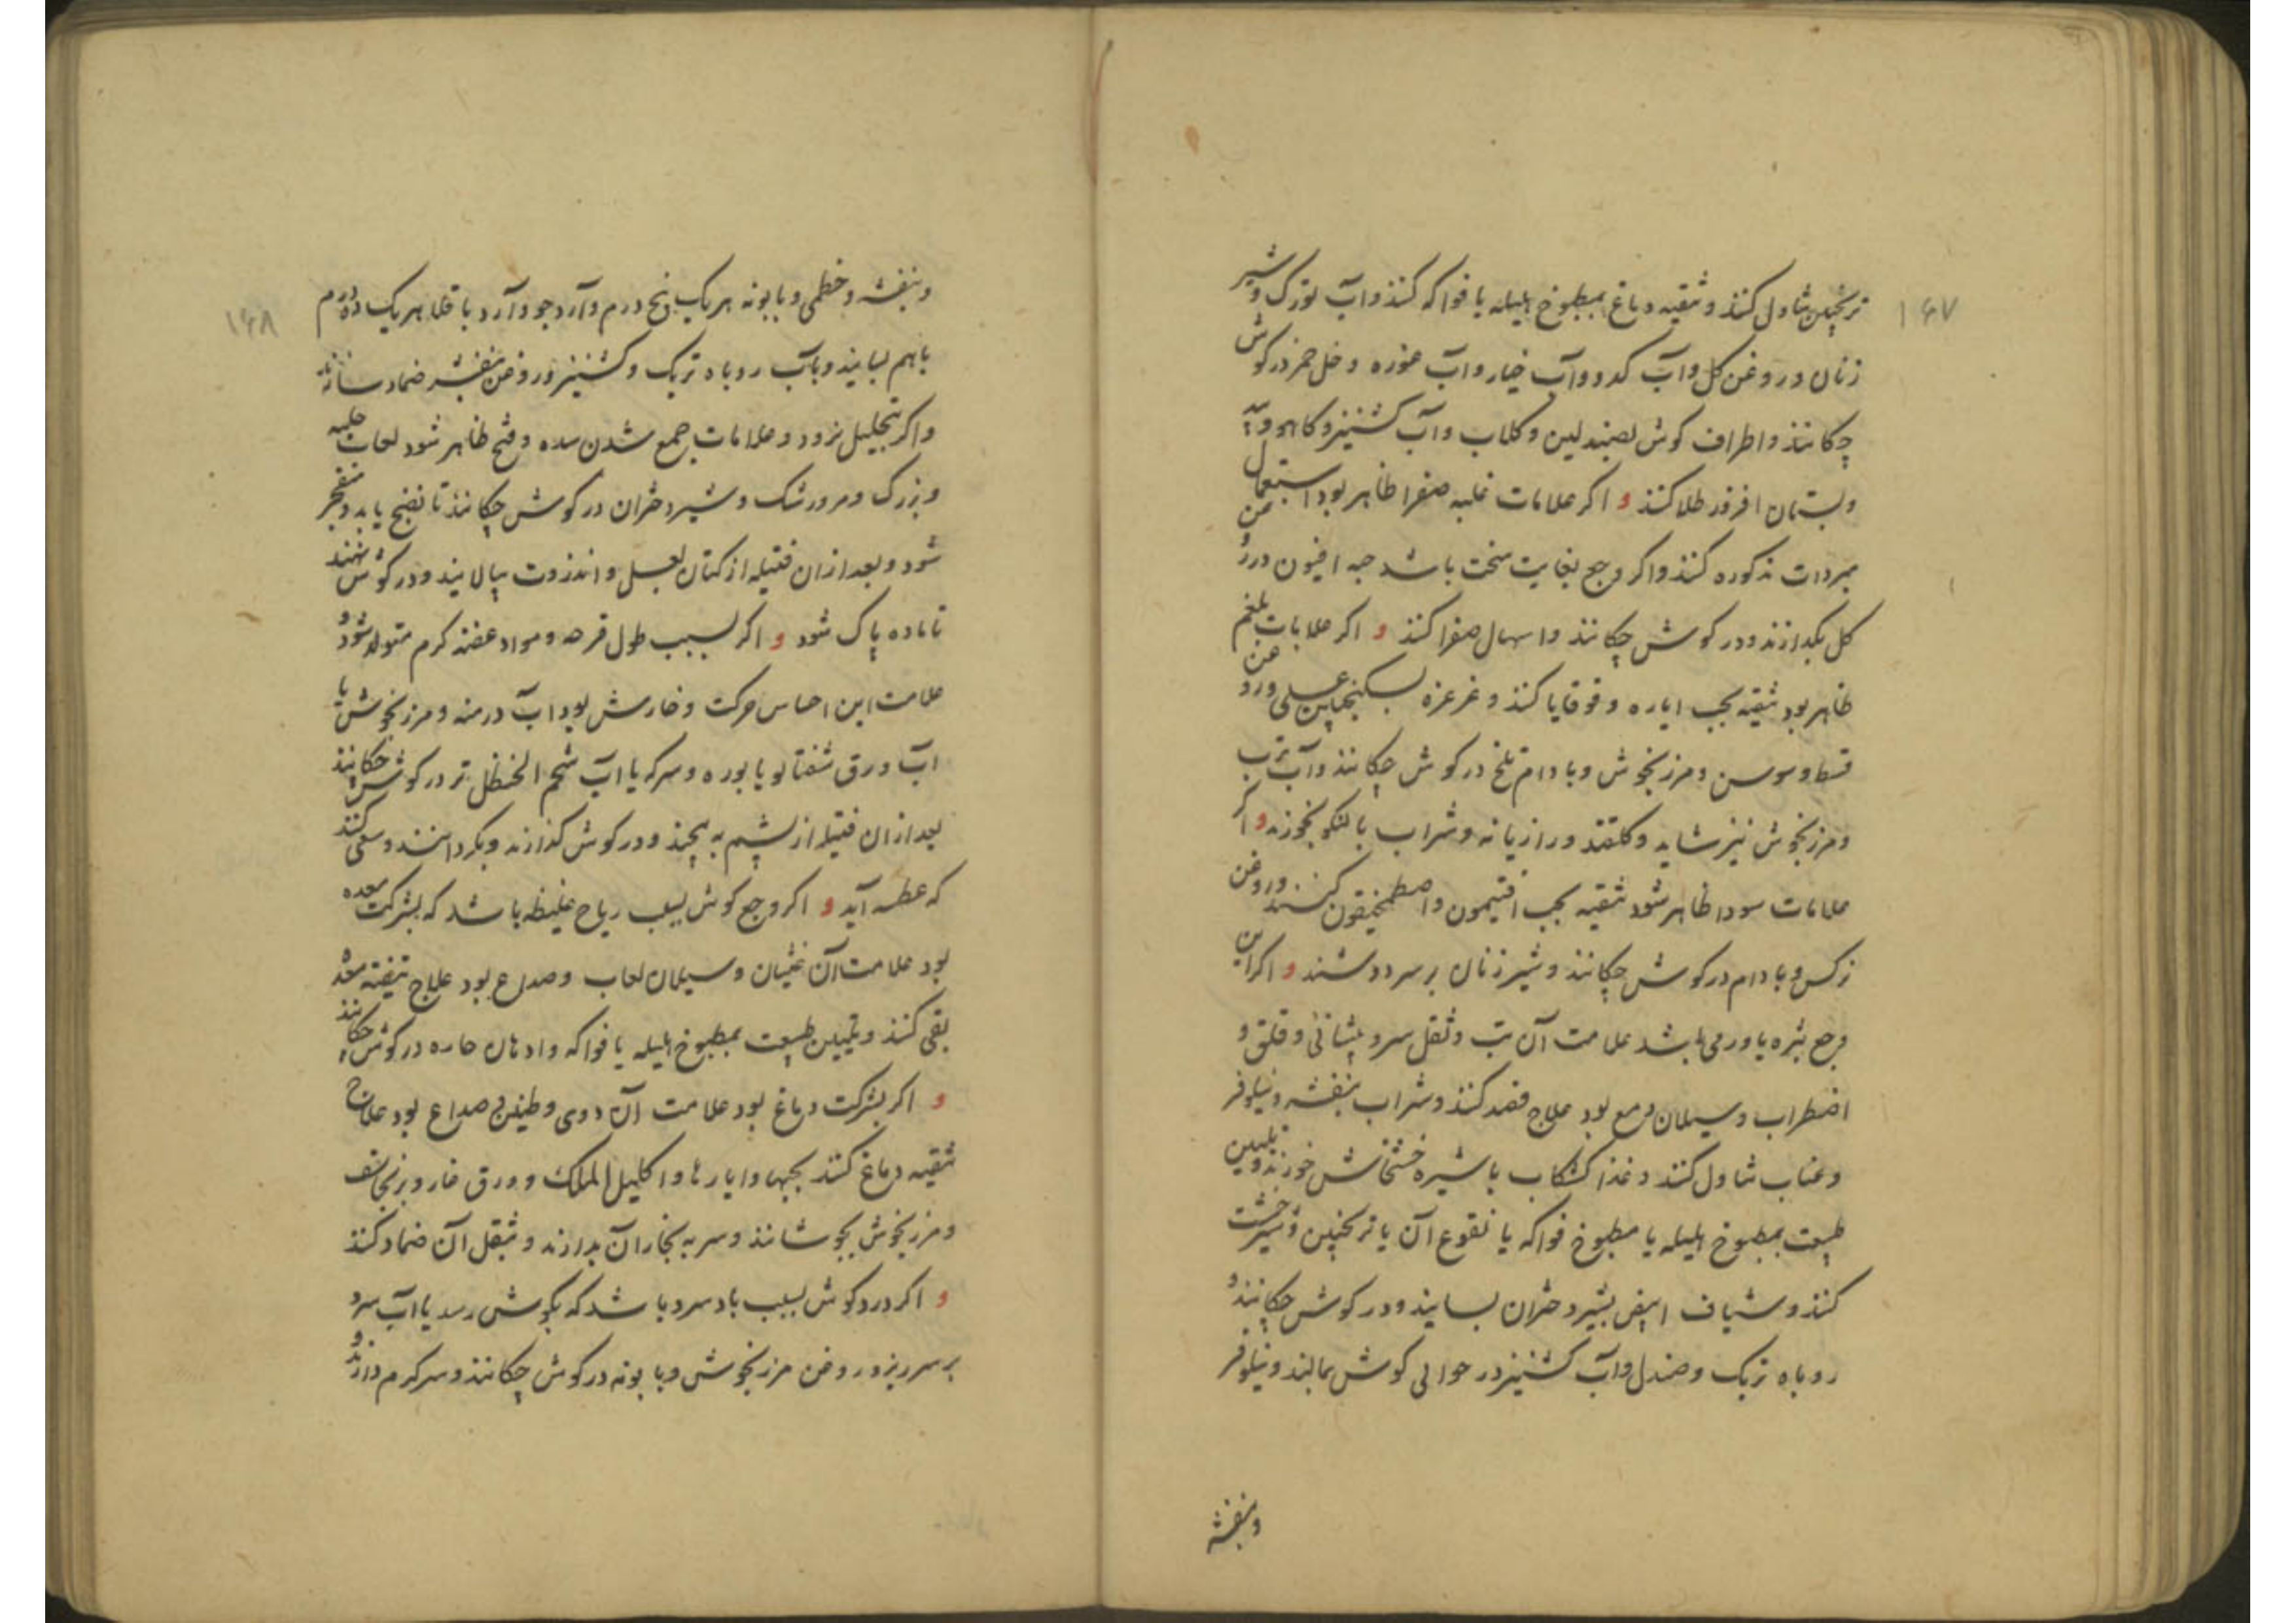 ۱۶۷
ترنجبین تناول کنند و تنقیه دماغ بمطبوخ هلیله یا فواکه کنند و آب تورک و شیر
زنان و روغن کل و آب کدو و آب خیار و آب غوره و خل خمر در کوش
چکانند و اطراف کوش بصندلین و کلاب و آب کشنیز و کاهو و آب
و بستان افروز طلا کنند و اکر علامات غلبه صفرا ظاهر بود استعمال
مبردات مذکوره کنند و اکر وجع بغایت سخت باشد حبه افیون در روغن
کل بکدازند و در کوش چکانند و اسهال صفرا کنند و اکر علامات بلغم
ظاهر بود تنقیه بحب ایاره و قوقایا کنند و غرغره بسکنجبین عسلی و روغن
قسط و سوسن و مرزنجوش و بادام تلخ در کوش چکانند و آب ترب
و مرزنجوش نیز شاید و کلقند و رازیانه و شراب بالنکو بخورند و اکر
علامات سودا ظاهر شود تنقیه بحب افتیمون و اصطمخیقون کنند و روغن
نرکس و بادام در کوش چکانند و شیر زنان بر سر دوشند و اکر این
وجع بثره یا ورمی باشد علامت آن تب و ثقل سر و پیشانی و قلق و
اضطراب و سیلان دمع بود علاج فصد کنند و شراب بنفشه و نیلوفر
و عناب تناول کنند و غذا کشکاب با شیره خشخاش خورند و تلیین
طبیعت بمطبوخ هلیله یا مطبوخ فواکه یا نقوع آن یا ترنجبین و شیرخشت
کنند و شیاف ابیض بشیر دختران بسایند و در کوش چکانند و
روباه تربک و صندل و آب کشنیز در حوالی کوش بمالند و نیلوفر
و بنفشه
۱۶۸
و بنفشه و خطمی و بابونه هر یک پنج درم و آرد جو و آرد باقلا هر یک ده درم
با هم بسایند و بآب روباه تربک و کشنیز و روغن بنفشه ضماد سازند
و اکر بتحلیل نرود و علامات جمع شدن مده و قیح ظاهر شود لعاب حلبه
و بزرک و مرورشک و شیر دختران در کوش چکانند تا نضج یابد و منفجر
شود و بعد از ان فتیله از کتان بعسل و انزروت بیالایند و در کوش نهند
تا ماده پاک شود و اکر بسبب طول قرحه و مواد عفنه کرم متولد شود و
علامت این احساس حرکت و خارش بود آب درمنه و مرزنجوش یا
آب ورق شفتالو یا بوره و سرکه یا آب شحم الحنظل تر در کوش چکانند
بعد از ان فتیله از پشم به پیچند و در کوش کذارند و بکردانند و سعی کنند
که عطسه آید و اکر وجع کوش بسبب ریاح غلیظه باشد که بشرکت معده
بود علامت آن غثیان و سیلان لعاب و صداع بود علاج تنقیه معده
بقی کنند و تلیین طبیعت بمطبوخ هلیله یا فواکه و ادهان حاره در کوش چکانند
و اکر بشرکت دماغ بود علامت آن دوی و طنین و صداع بود علاج
تنقیه دماغ کنند بحبها و ایارها و اکلیل الملک و ورق غار و برنجاسف
و مرزنجوش بجوشانند و سر به بخار آن بدارند و بثقل آن ضماد کنند
و اکر درد کوش بسبب باد سرد باشد که بکوش رسد یا آب سرد
بر سر ریزد روغن مرزنجوش و بابونه در کوش چکانند و سر کرم دارند و